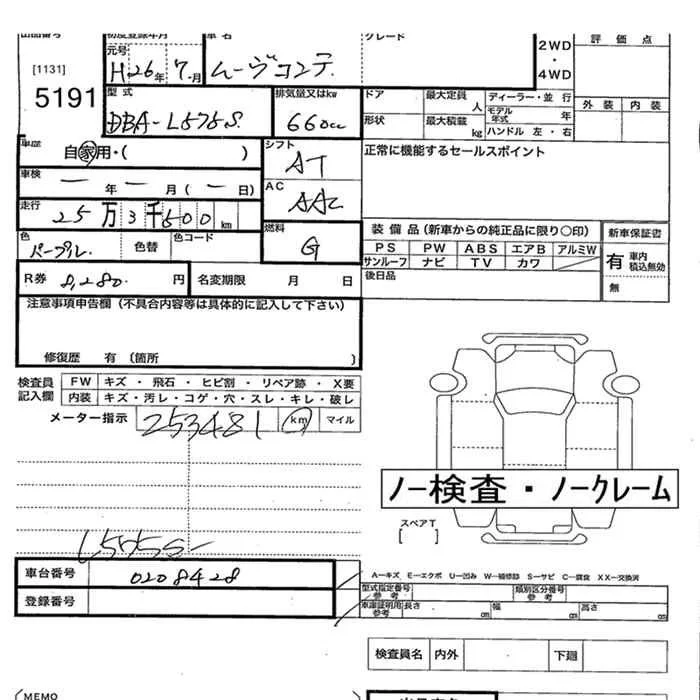 出品番号 初度登録年月 車名 グレード
[1131] 元号 H26年7月 ムーヴコンテ 2WD・4WD 評価点
5191 型式 DBA-L575S 排気量又はkw 660cc ドア 最大定員 人 ディーラー・並行 外装 内装
形状 最大積載 kg モデル年式 年 ハンドル 左・右
車歴 自家用・( ) シフト AT 正常に機能するセールスポイント
車検 ー年ー月(ー日) AC AAC
走行 25万3千500km 装備品(新車からの純正品に限り○印) 新車保証書
色 パープル 色替 色コード 燃料 G PS PW ABS エアB アルミW 有 車内積込無効
サンルーフ ナビ TV カワ
R券 8,280円 名変期限 月 日 後日品 無
注意事項申告欄(不具合内容等は具体的に記入して下さい)
修復歴 有(箇所 )
検査員記入欄 FW キズ・飛石・ヒビ割・リペア跡・X要
内装 キズ・汚レ・コゲ・穴・スレ・キレ・破レ
メーター指示 253481 km マイル
ノー検査・ノークレーム
スペアT
[ ]
車台番号 0208428 A-キズ E-エクボ U-凹み W-補修跡 S-サビ C-腐食 XX-交換済
登録番号 型式指定番号参考 類別区分番号参考
車庫証明用参考 長さ cm 幅 cm 高さ cm
検査員名 内外 下廻
(MEMO